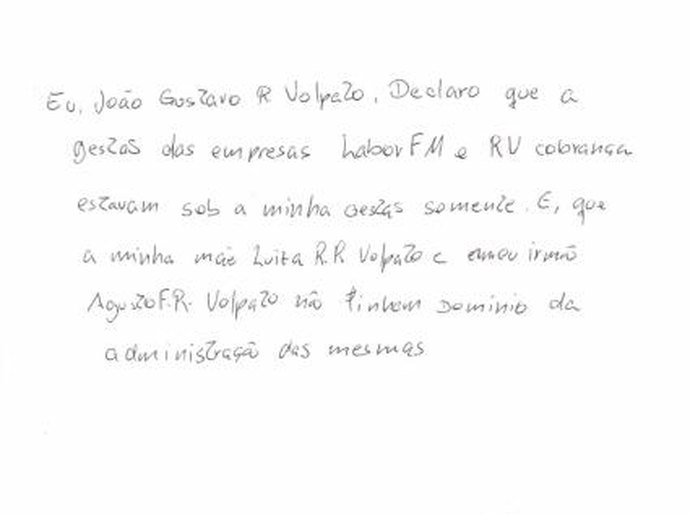 Eu, João Gustavo R Volpato, Declaro que a
gestão das empresas Labor FM e RV cobrança
estavam sob a minha gestão somente. E, que
a minha mãe Luiza R.R Volpato e e meu irmão
Agusto F.R. Volpato não tinham Dominio da
administração das mesmas